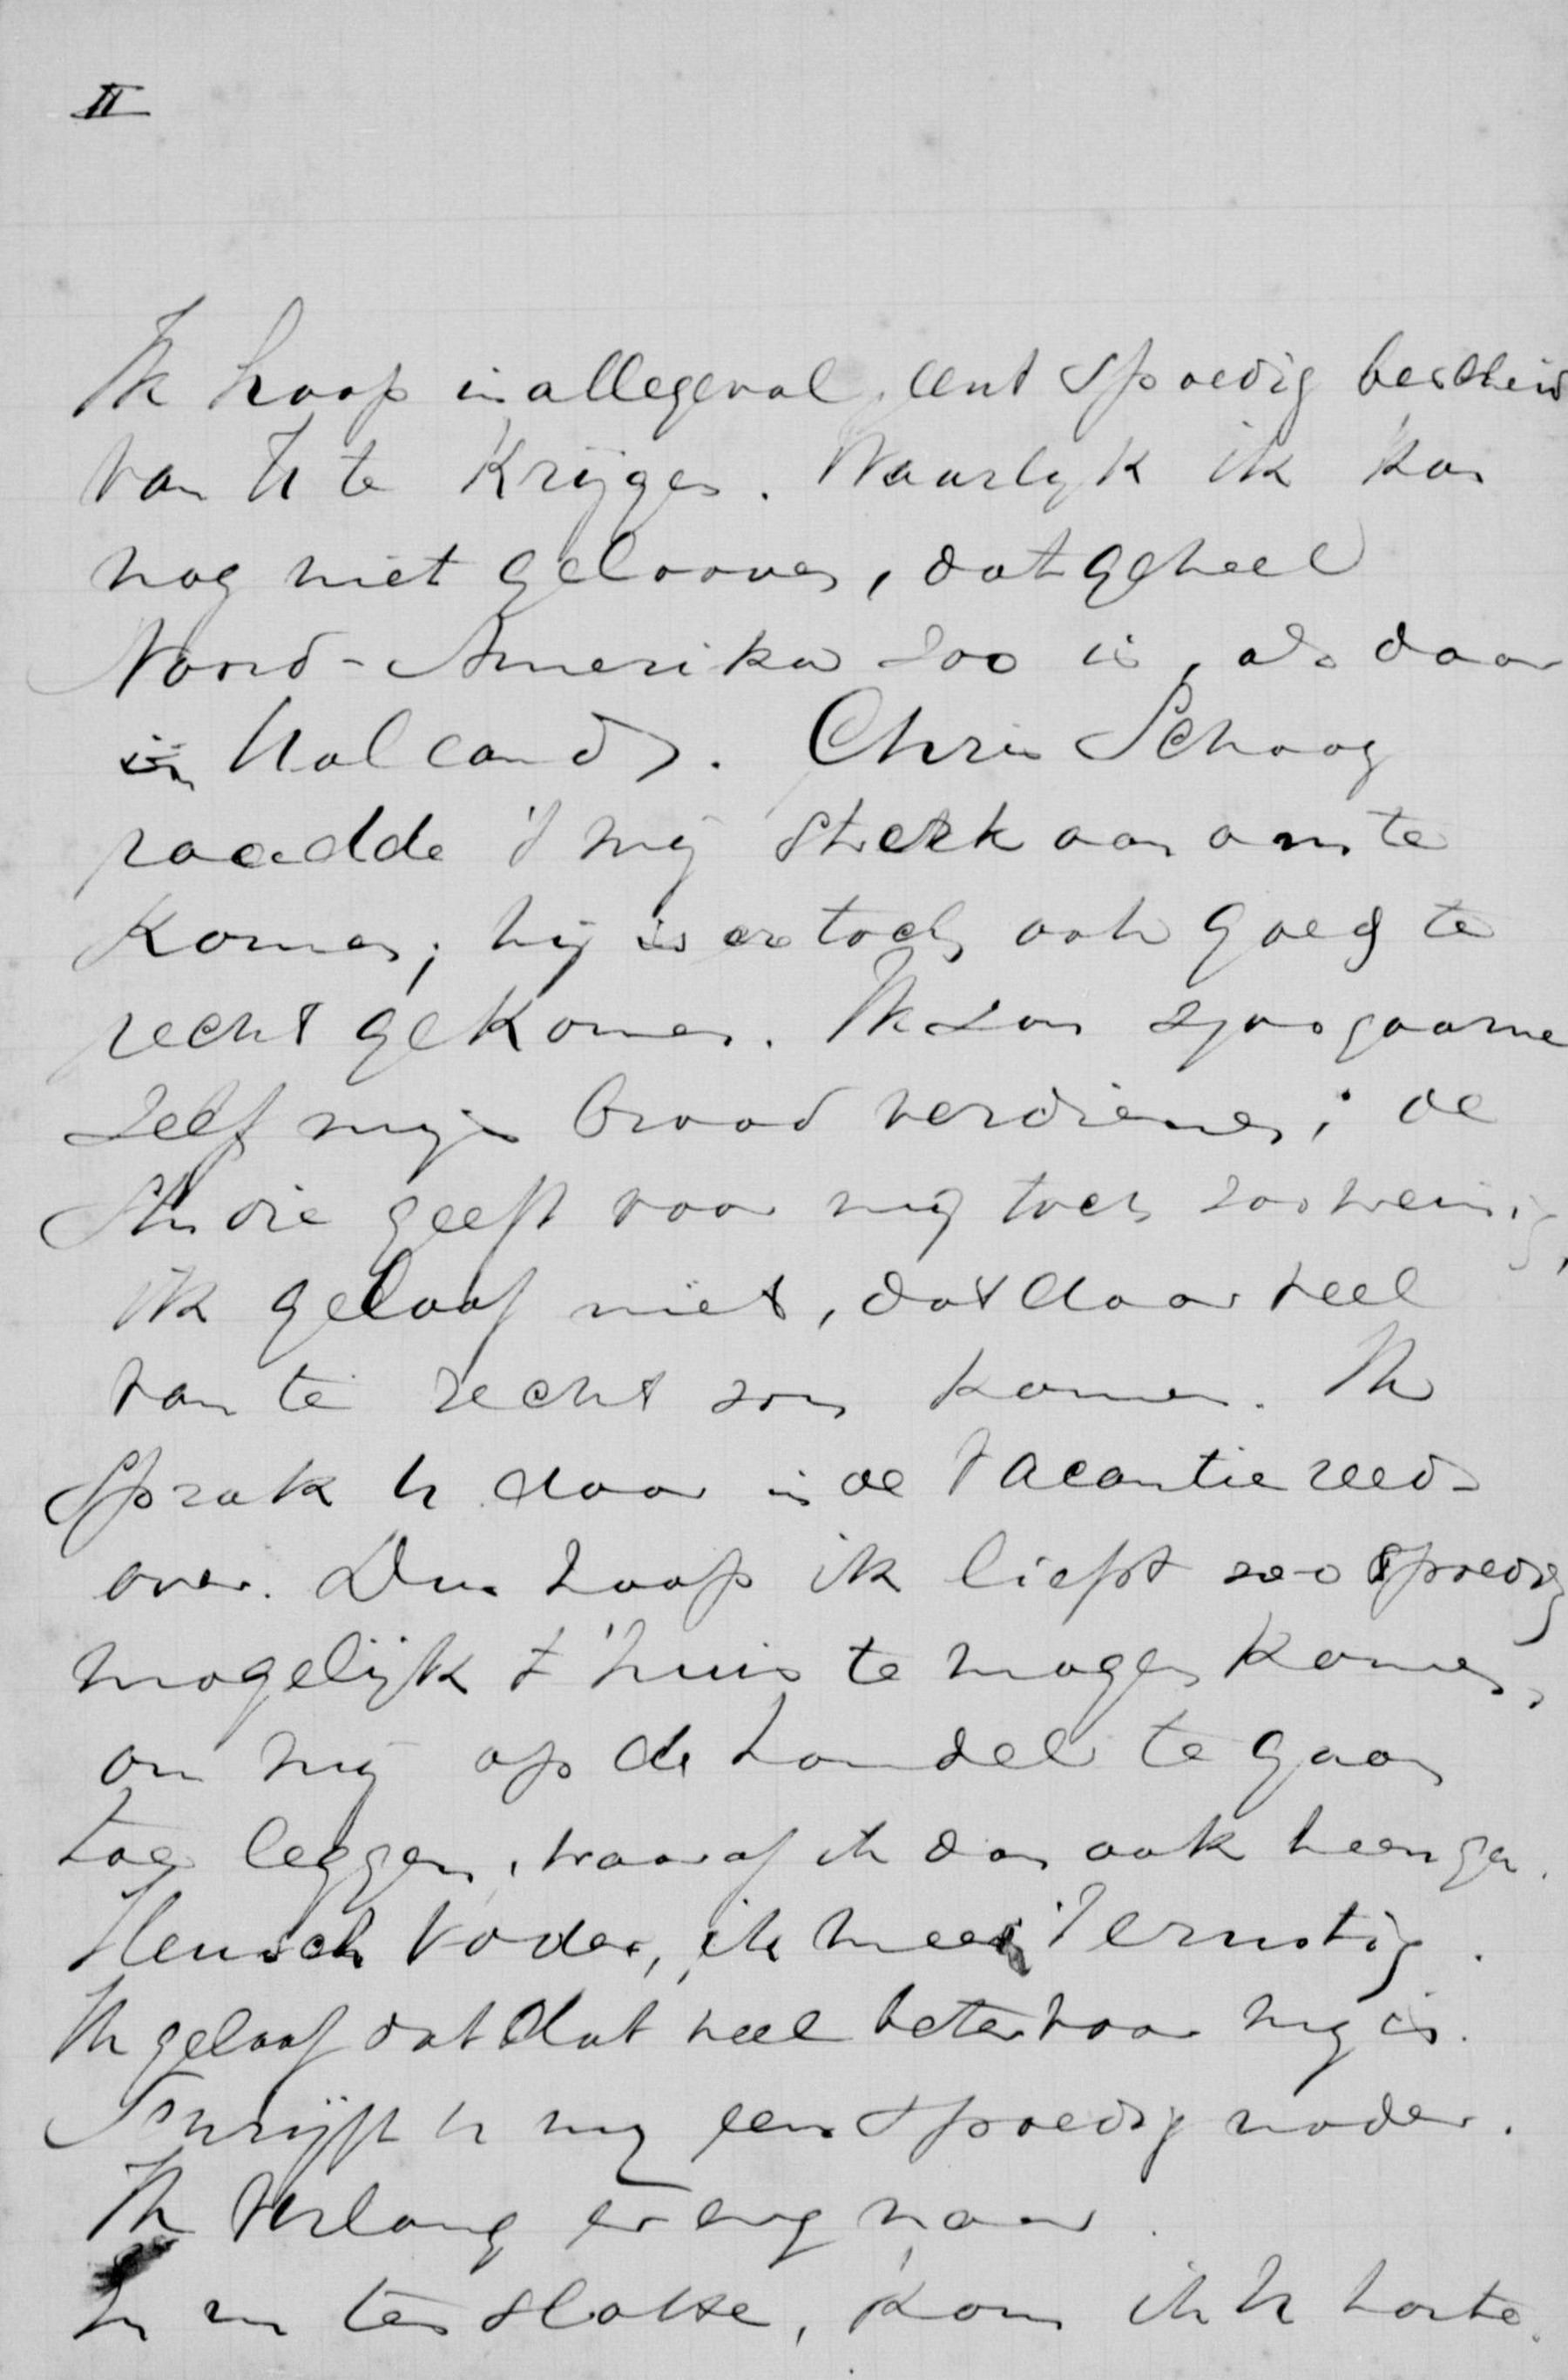 II
Ik hoop in allegeval eens spoedig bescheid
van U te Krijgen. Waarlijk ik kan
nog niet gelooven, dat geheel
Noord-Amerika zoo is, als daar
in Holland. Chris Schoog
raadde 't mij sterk aan om te
Komen; hij is er toch ook goed te
recht geKomen. Ik zou zoo gaarne
zelf mijn brood verdienen; de
Studie geeft voor mij toch zoo weinig,
ik geloof niet, dat daar veel
van te recht zou komen. Ik
Sprak U daar in de Vacantie reeds
over. Dus hoop ik liefst zoo spoedig
mogelijk t'huis te mogen Komen,
om mij op de handel te gaan
toe leggen, waar of ik dan ook heen ga.
Heusch Vader, ik meen 't ernstig.
Ik geloof dat dat veel beter voor mij is.
Schrijft U mij eens spoedig nader.
Ik verlang er erg naar.
En nu ten slotte, kom ik U harte